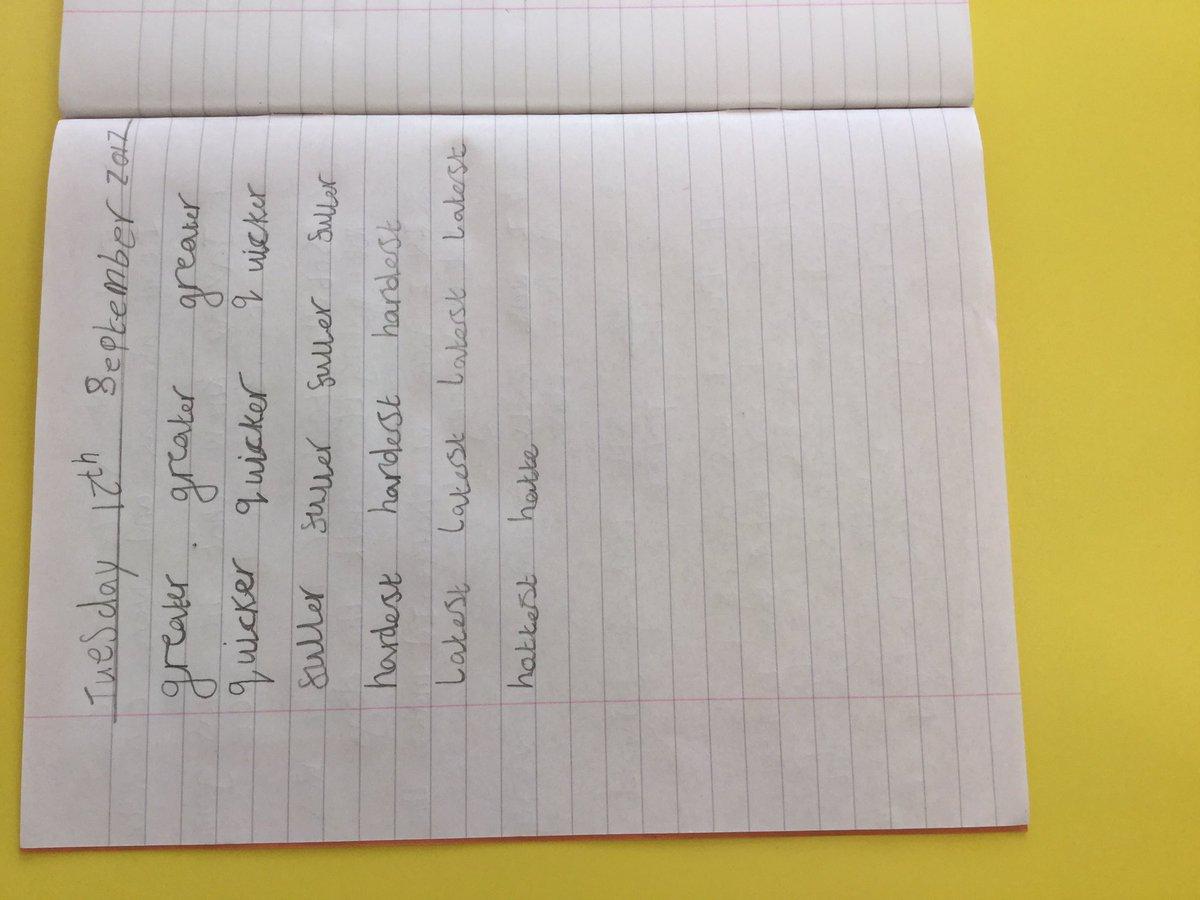 Tuesday 12th September 2017
greater greater greater
quicker quicker quicker
fuller fuller fuller fuller
hardest hardest hardest
latest latest latest latest
hottest hotte